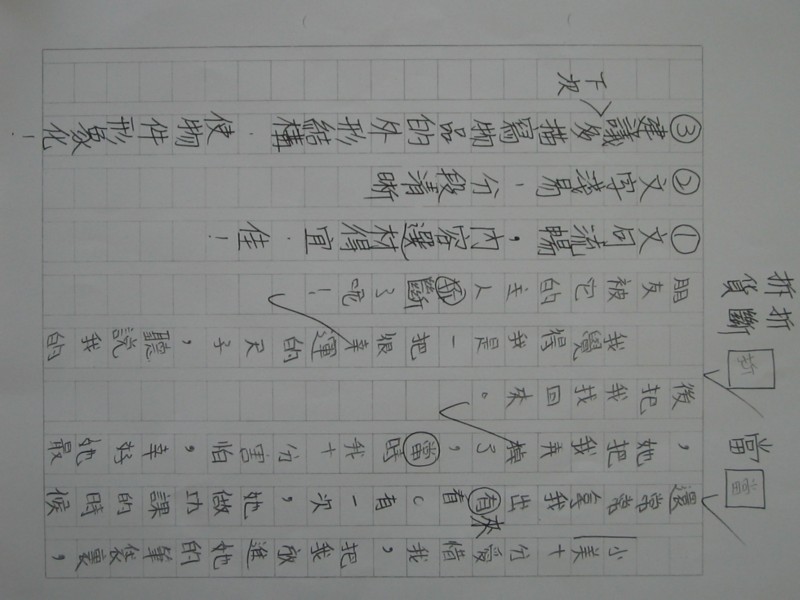 小美十分愛惜我，把我放進她的筆袋裏，
來
還常常拿我出有看。有一次，她做功課的時候
，她把我弄掉了，當時我十分害怕，幸好她最
後把我找回來。
我覺得我是一把很幸運的尺子，聽說我的
朋友被它的主人折斷了呢！
①文句流暢，內容選材得宜，佳！
②文字淺易，分段清晰
③建議多描寫物品的外形結構，使物件形象化！
下次
當
當
折斷
折